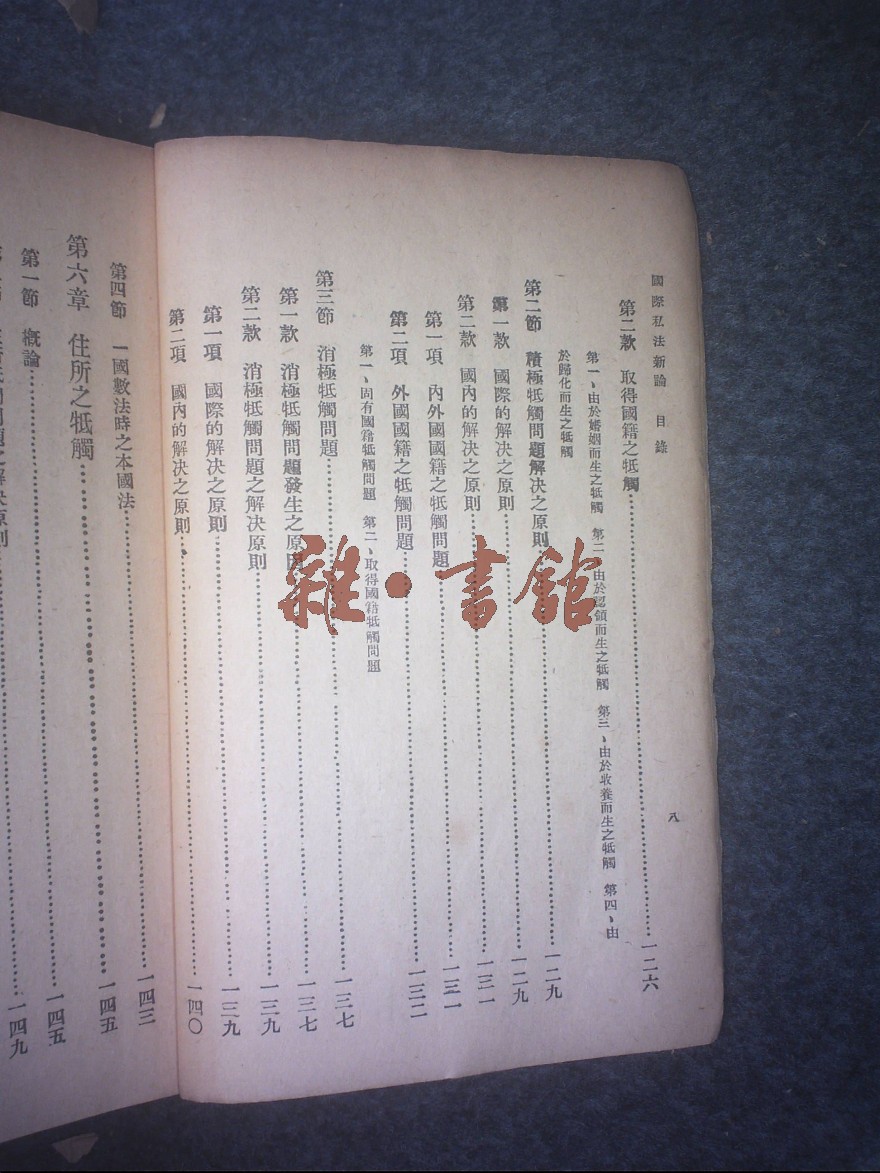 國際私法新論 目錄 八
第二款 取得國籍之牴觸……一二六
第一、由於婚姻而生之牴觸 第二、由於認領而生之牴觸 第三、由於收養而生之牴觸 第四、由
於歸化而生之牴觸
第二節 積極牴觸問題解決之原則……一二九
第一款 國際的解決之原則……一二九
第二款 國內的解決之原則……一三一
第一項 內外國國籍之牴觸問題……一三一
第二項 外國國籍之牴觸問題……一三二
第一、固有國籍牴觸問題 第二、取得國籍牴觸問題
第三節 消極牴觸問題……一三七
第一款 消極牴觸問題發生之原因……一三七
第二款 消極牴觸問題之解決原則……一三九
第一項 國際的解決之原則……一三九
第二項 國內的解決之原則……一四〇
第四節 一國數法時之本國法……一四三
第六章 住所之牴觸……一四五
第一節 概論……一四五
之解決原則……一四九
雜·書館